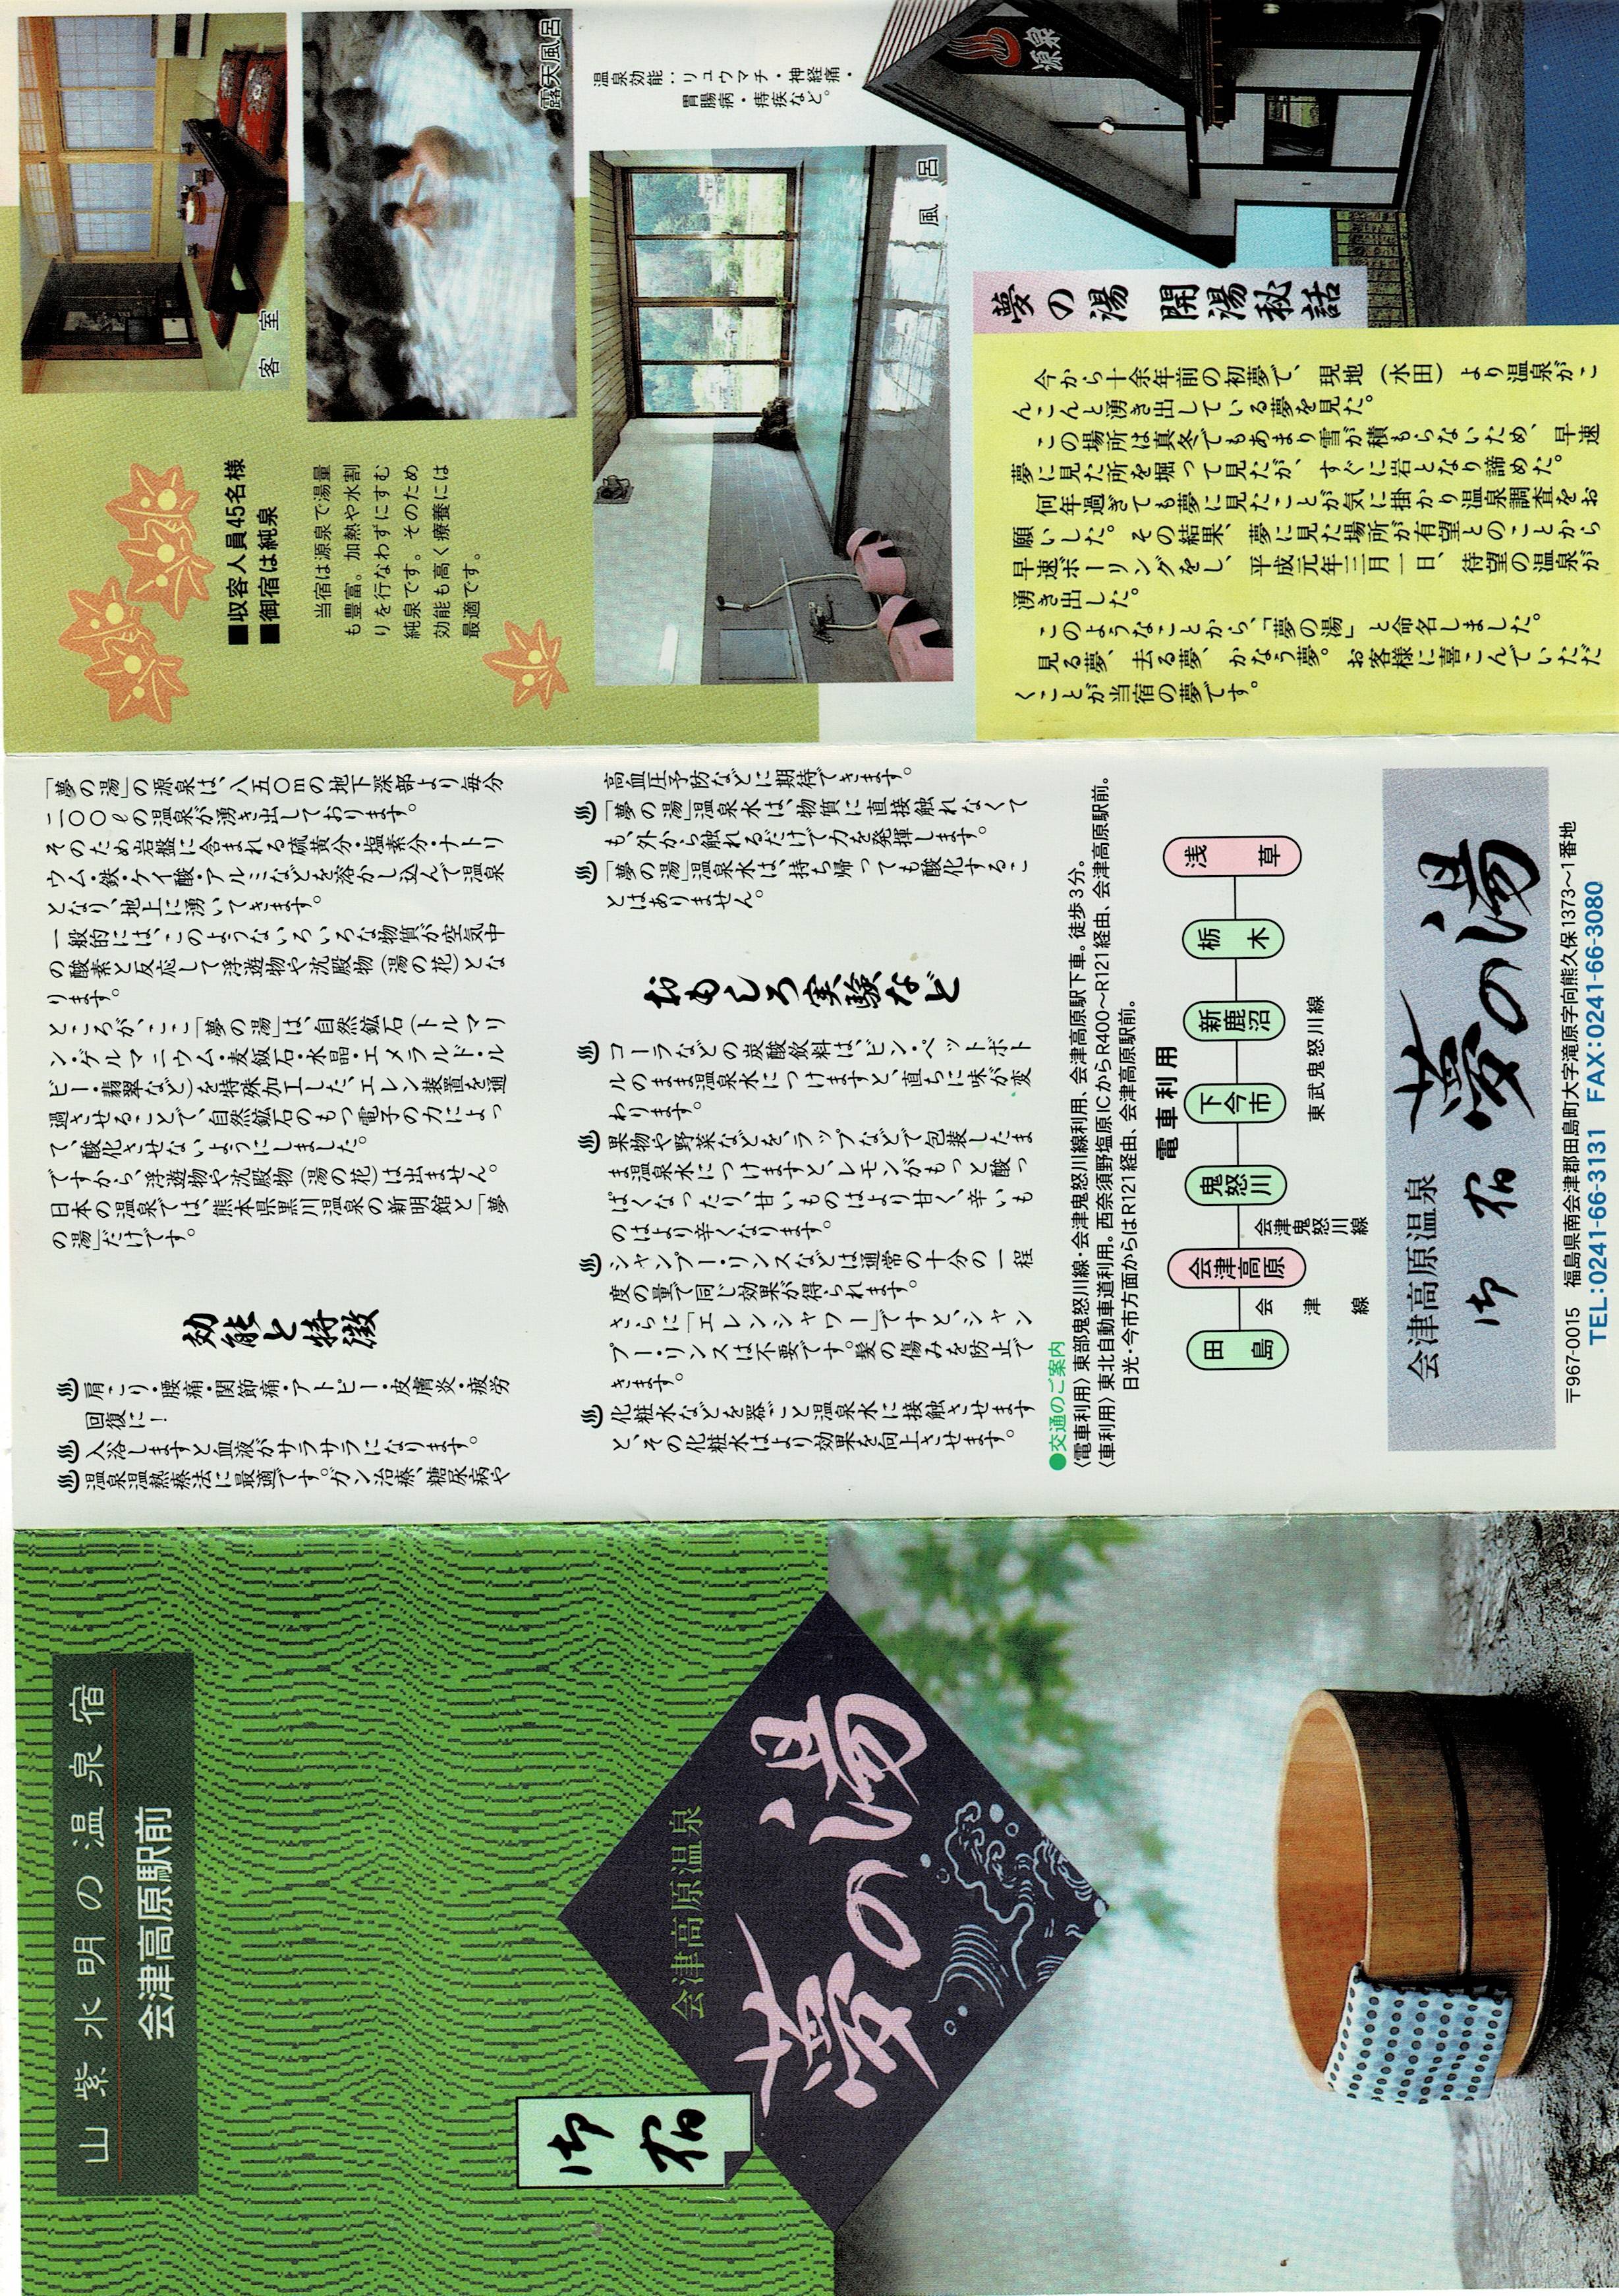 山紫水明の温泉宿
会津高原駅前
御宿
会津高原温泉
夢の湯
「夢の湯」の源泉は、八五〇mの地下深部より毎分
二〇〇ℓの温泉が湧き出しております。
そのため岩盤に含まれる硫黄分・塩素分・ナトリ
ウム・鉄・ケイ酸・アルミなどを溶かし込んで温泉
となり、地上に湧いてきます。
一般的には、このようないろいろな物質が空気中
の酸素と反応して浮遊物や沈殿物(湯の花)とな
ります。
ところが、ここ「夢の湯」は、自然鉱石(トルマリ
ン・ゲルマニウム・麦飯石・水晶・エメラルド・ル
ビー・翡翠など)を特殊加工した、エレン装置を通
過させることで、自然鉱石のもつ電子の力によっ
て、酸化させないようにしました。
ですから、浮遊物や沈殿物(湯の花)は出ません。
日本の温泉では、熊本県黒川温泉の新明館と「夢
の湯」だけです。
効能と特徴
肩こり・腰痛・関節痛・アトピー・皮膚炎・疲労
回復に!
入浴しますと血液がサラサラになります。
温泉温熱療法に最適です。ガン治療、糖尿病や
高血圧予防などに期待できます。
「夢の湯」温泉水は、物質に直接触れなくて
も、外から触れるだけで力を発揮します。
「夢の湯」温泉水は、持ち帰っても酸化するこ
とはありません。
おもしろ実験など
コーラなどの炭酸飲料は、ビン・ペットボト
ルのまま温泉水につけますと、直ちに味が変
わります。
果物や野菜などを、ラップなどで包装したま
ま温泉水につけますと、レモンがもっと酸っ
ぱくなったり、甘いものはより甘く、辛いも
のはより辛くなります。
シャンプー・リンスなどは通常の十分の一程
度の量で同じ効果が得られます。
さらに「エレンシャワー」ですと、シャン
プー・リンスは不要です。髪の傷みを防止で
きます。
化粧水などを器ごと温泉水に接触させます
と、その化粧水はより効果を向上させます。
●交通のご案内
〈電車利用〉東部鬼怒川線・会津鬼怒川線利用、会津高原駅下車。徒歩3分。
〈車利用〉東北自動車道利用。西奈須野塩原ICからR400〜R121経由、会津高原駅前。
日光・今市方面からはR121経由、会津高原駅前。
電車利用
田島
会津高原
鬼怒川
下今市
新鹿沼
栃木
浅草
会津線
会津鬼怒川線
東武鬼怒川線
会津高原温泉
御宿 夢の湯
〒967-0015 福島県南会津郡田島町大字滝原字向熊久保1373〜1番地
TEL:0241-66-3131 FAX:0241-66-3080
■収容人員45名様
■御宿は純泉
当宿は源泉で湯量
も豊富。加熱や水割
りを行なわずにすむ
純泉です。そのため
効能も高く療養には
最適です。
客室
露天風呂
温泉効能:リュウマチ・神経痛・
胃腸病・痔疾など。
風呂
源泉
夢の湯 開湯秘話
今から十余年前の初夢で、現地(水田)より温泉がこ
んこんと湧き出している夢を見た。
この場所は真冬でもあまり雪が積もらないため、早速
夢に見た所を堀って見たが、すぐに岩となり諦めた。
何年過ぎても夢に見たことが気に掛かり温泉調査をお
願いした。その結果、夢に見た場所が有望とのことから
早速ボーリングをし、平成元年三月一日、待望の温泉が
湧き出した。
このようなことから、「夢の湯」と命名しました。
見る夢、去る夢、かなう夢。お客様に喜こんでいただ
くことが当宿の夢です。